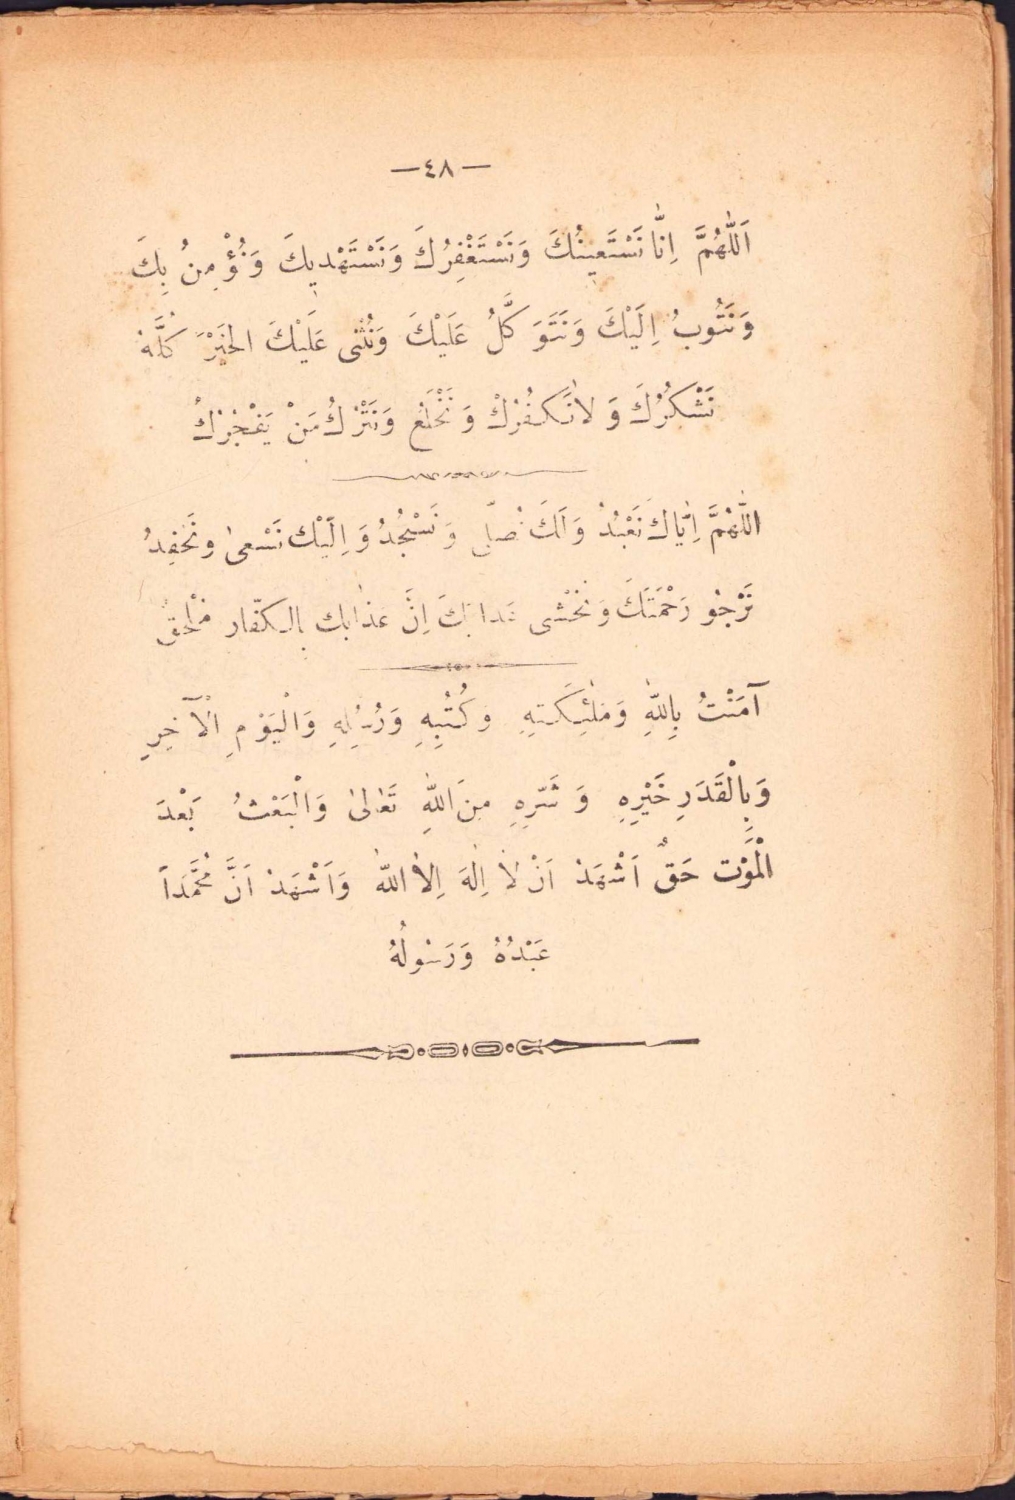 — ٤٨ —
اَللّٰهُمَّ اِنَّا نَسْتَعِينُكَ وَنَسْتَغْفِرُكَ وَنَسْتَهْدِيكَ وَنُؤْمِنُ بِكَ
وَنَتُوبُ اِلَيْكَ وَنَتَوَكَّلُ عَلَيْكَ وَنُثْنى عَلَيْكَ الْخَيْرَ كُلَّهُ
نَشْكُرُكَ وَلاٰنَكْفُرُكْ وَنَخْلَعُ وَنَتْرُكُ مَنْ يَفْجُرُكْ
اللّٰهُمَّ اِيّٰاكَ نَعْبُدُ وَلَكَ نُصلّى وَنَسْجُدُ وَاِلَيْكَ نَسْعىٰ ونَحْفِدُ
نَرْجُو رَحْمَتَكَ وَنَخْشى عَذابَكَ اِنَّ عذٰابك بالكفّار مُلْحقٌ
آمَنْتُ بِاللّٰهِ وَمَلٰئِكَتِهِ وَكُتُبِهِ وَرُسُلِهِ وَالْيَوْمِ الْآخِرِ
وَبِالْقَدَرِ خَيْرِهِ وَشَرِّهِ مِنَ اللّٰهِ تَعٰالىٰ وَالْبَعْثُ بَعْدَ
الْمَوْت حَقٌ اَشْهَدُ اَنْ لاٰ اِلٰهَ اِلاّ اللّٰه وَاَشْهَدُ اَنَّ مُحَمَّداً
عَبْدُهُ وَرَسُولُهُ